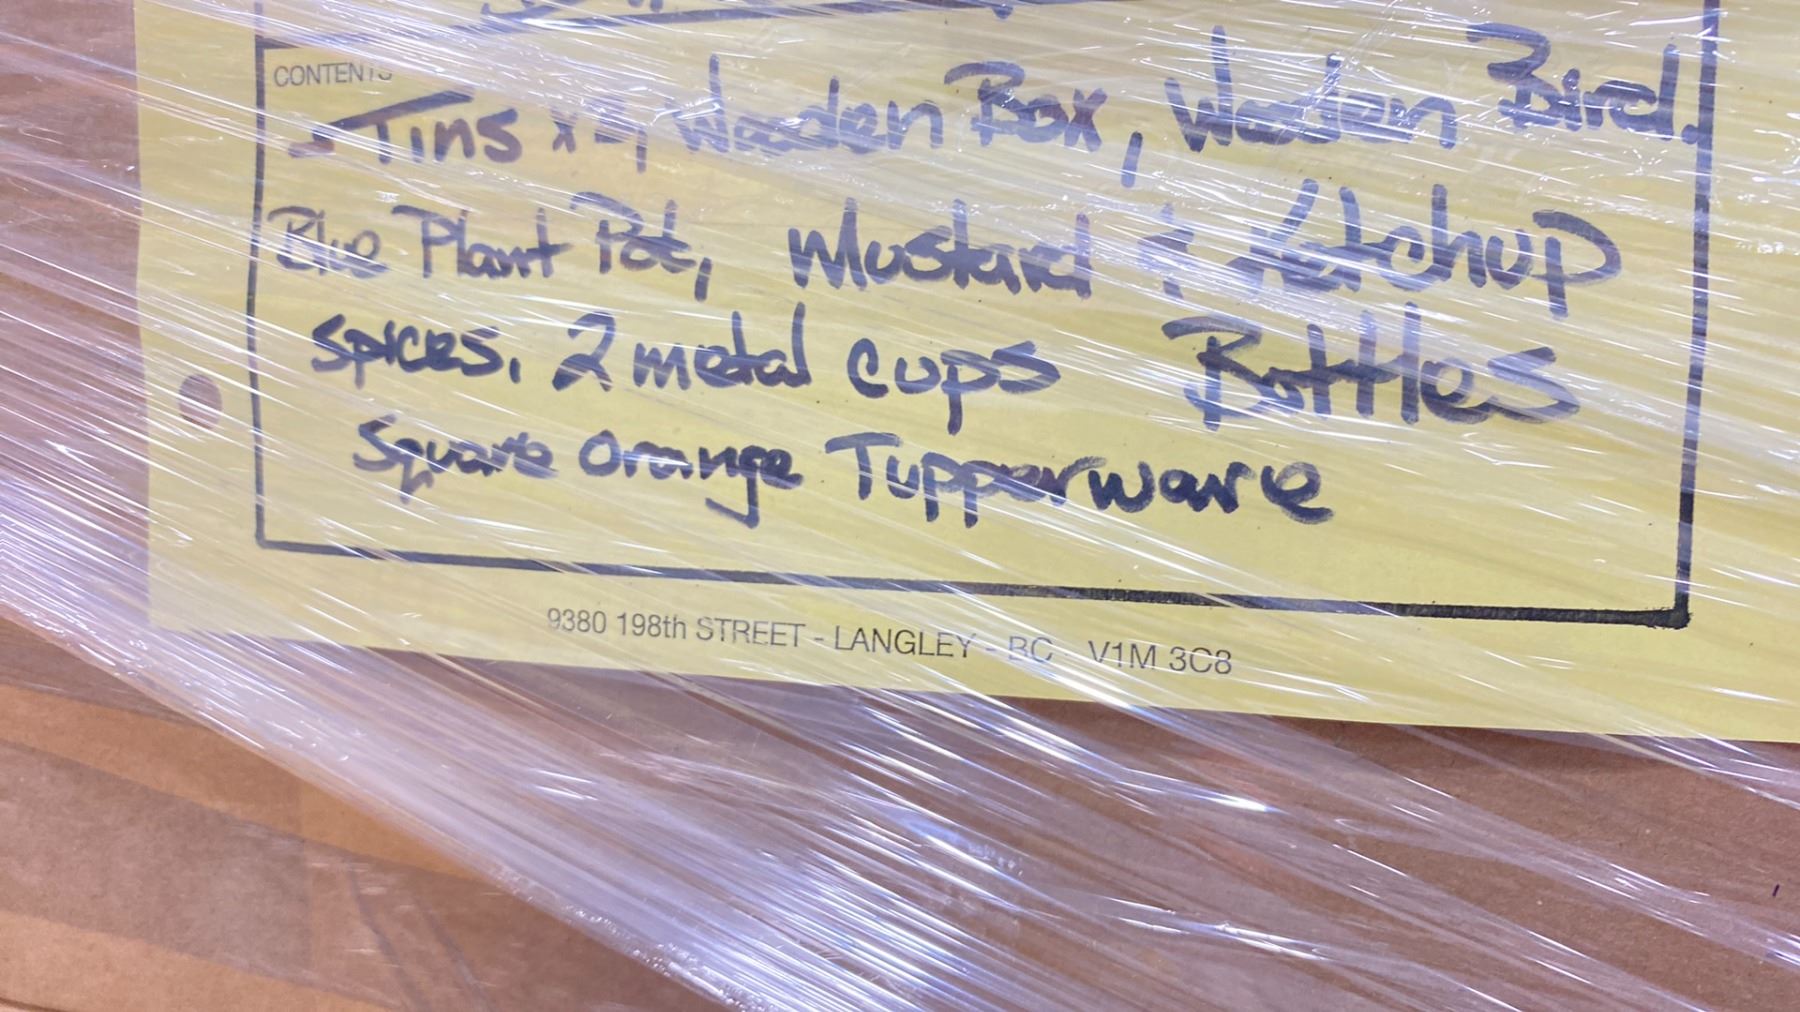 CONTENTS
- Tins x 2, Wooden Box, Wooden Bird,
Blue Plant Pot, Mustard & Ketchup
spices, 2 metal cups Bottles
Square Orange Tupperware
9380 198th STREET - LANGLEY - BC - V1M 3C8